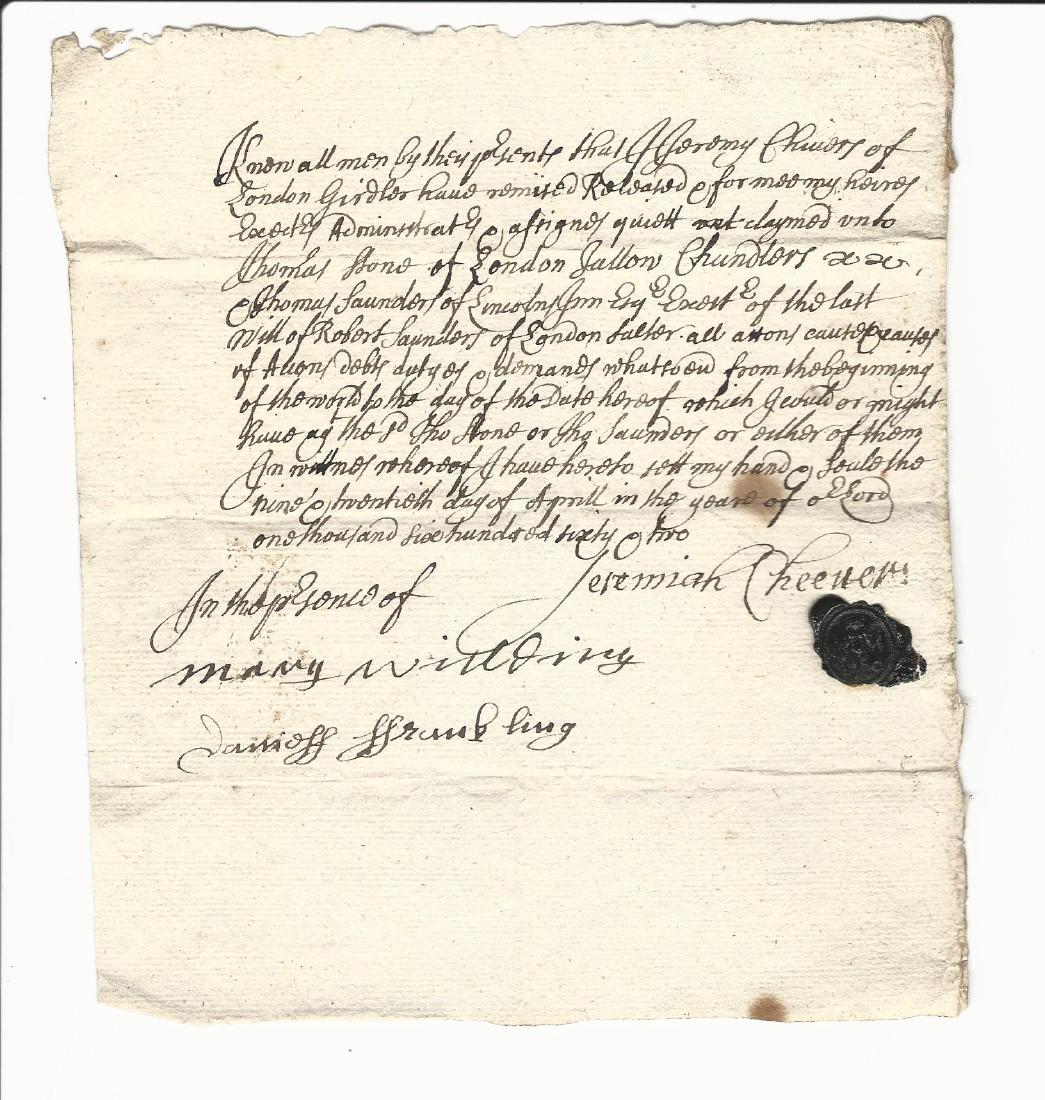 Know all men by theis p:rsents that I Jeremy Chivers of
London Girdler have remised Released & for mee my heires
Execrs Administratrs & assignes quiett claymed unto
Thomas Stone of London Tallow Chandlers
& Thomas Saunders of Lincolns Inn Esqr Exectr of the last
Will of Robert Saunders of London Salter all accons cause & causes
of Accons debts dutyes & demands whatsoevr from the beginning
of the world to the day of the Date hereof which I could or might
have agt the sd Tho Stone or Tho Saunders or either of them
In wittnes whereof I have hereto sett my hand & Seale the
nine & twentieth day of Aprill in the yeare of or Lord
one thousand six hundred sixty & two
Jeremiah Cheever
In the prsence of
mary willding
Daniell ffrankling